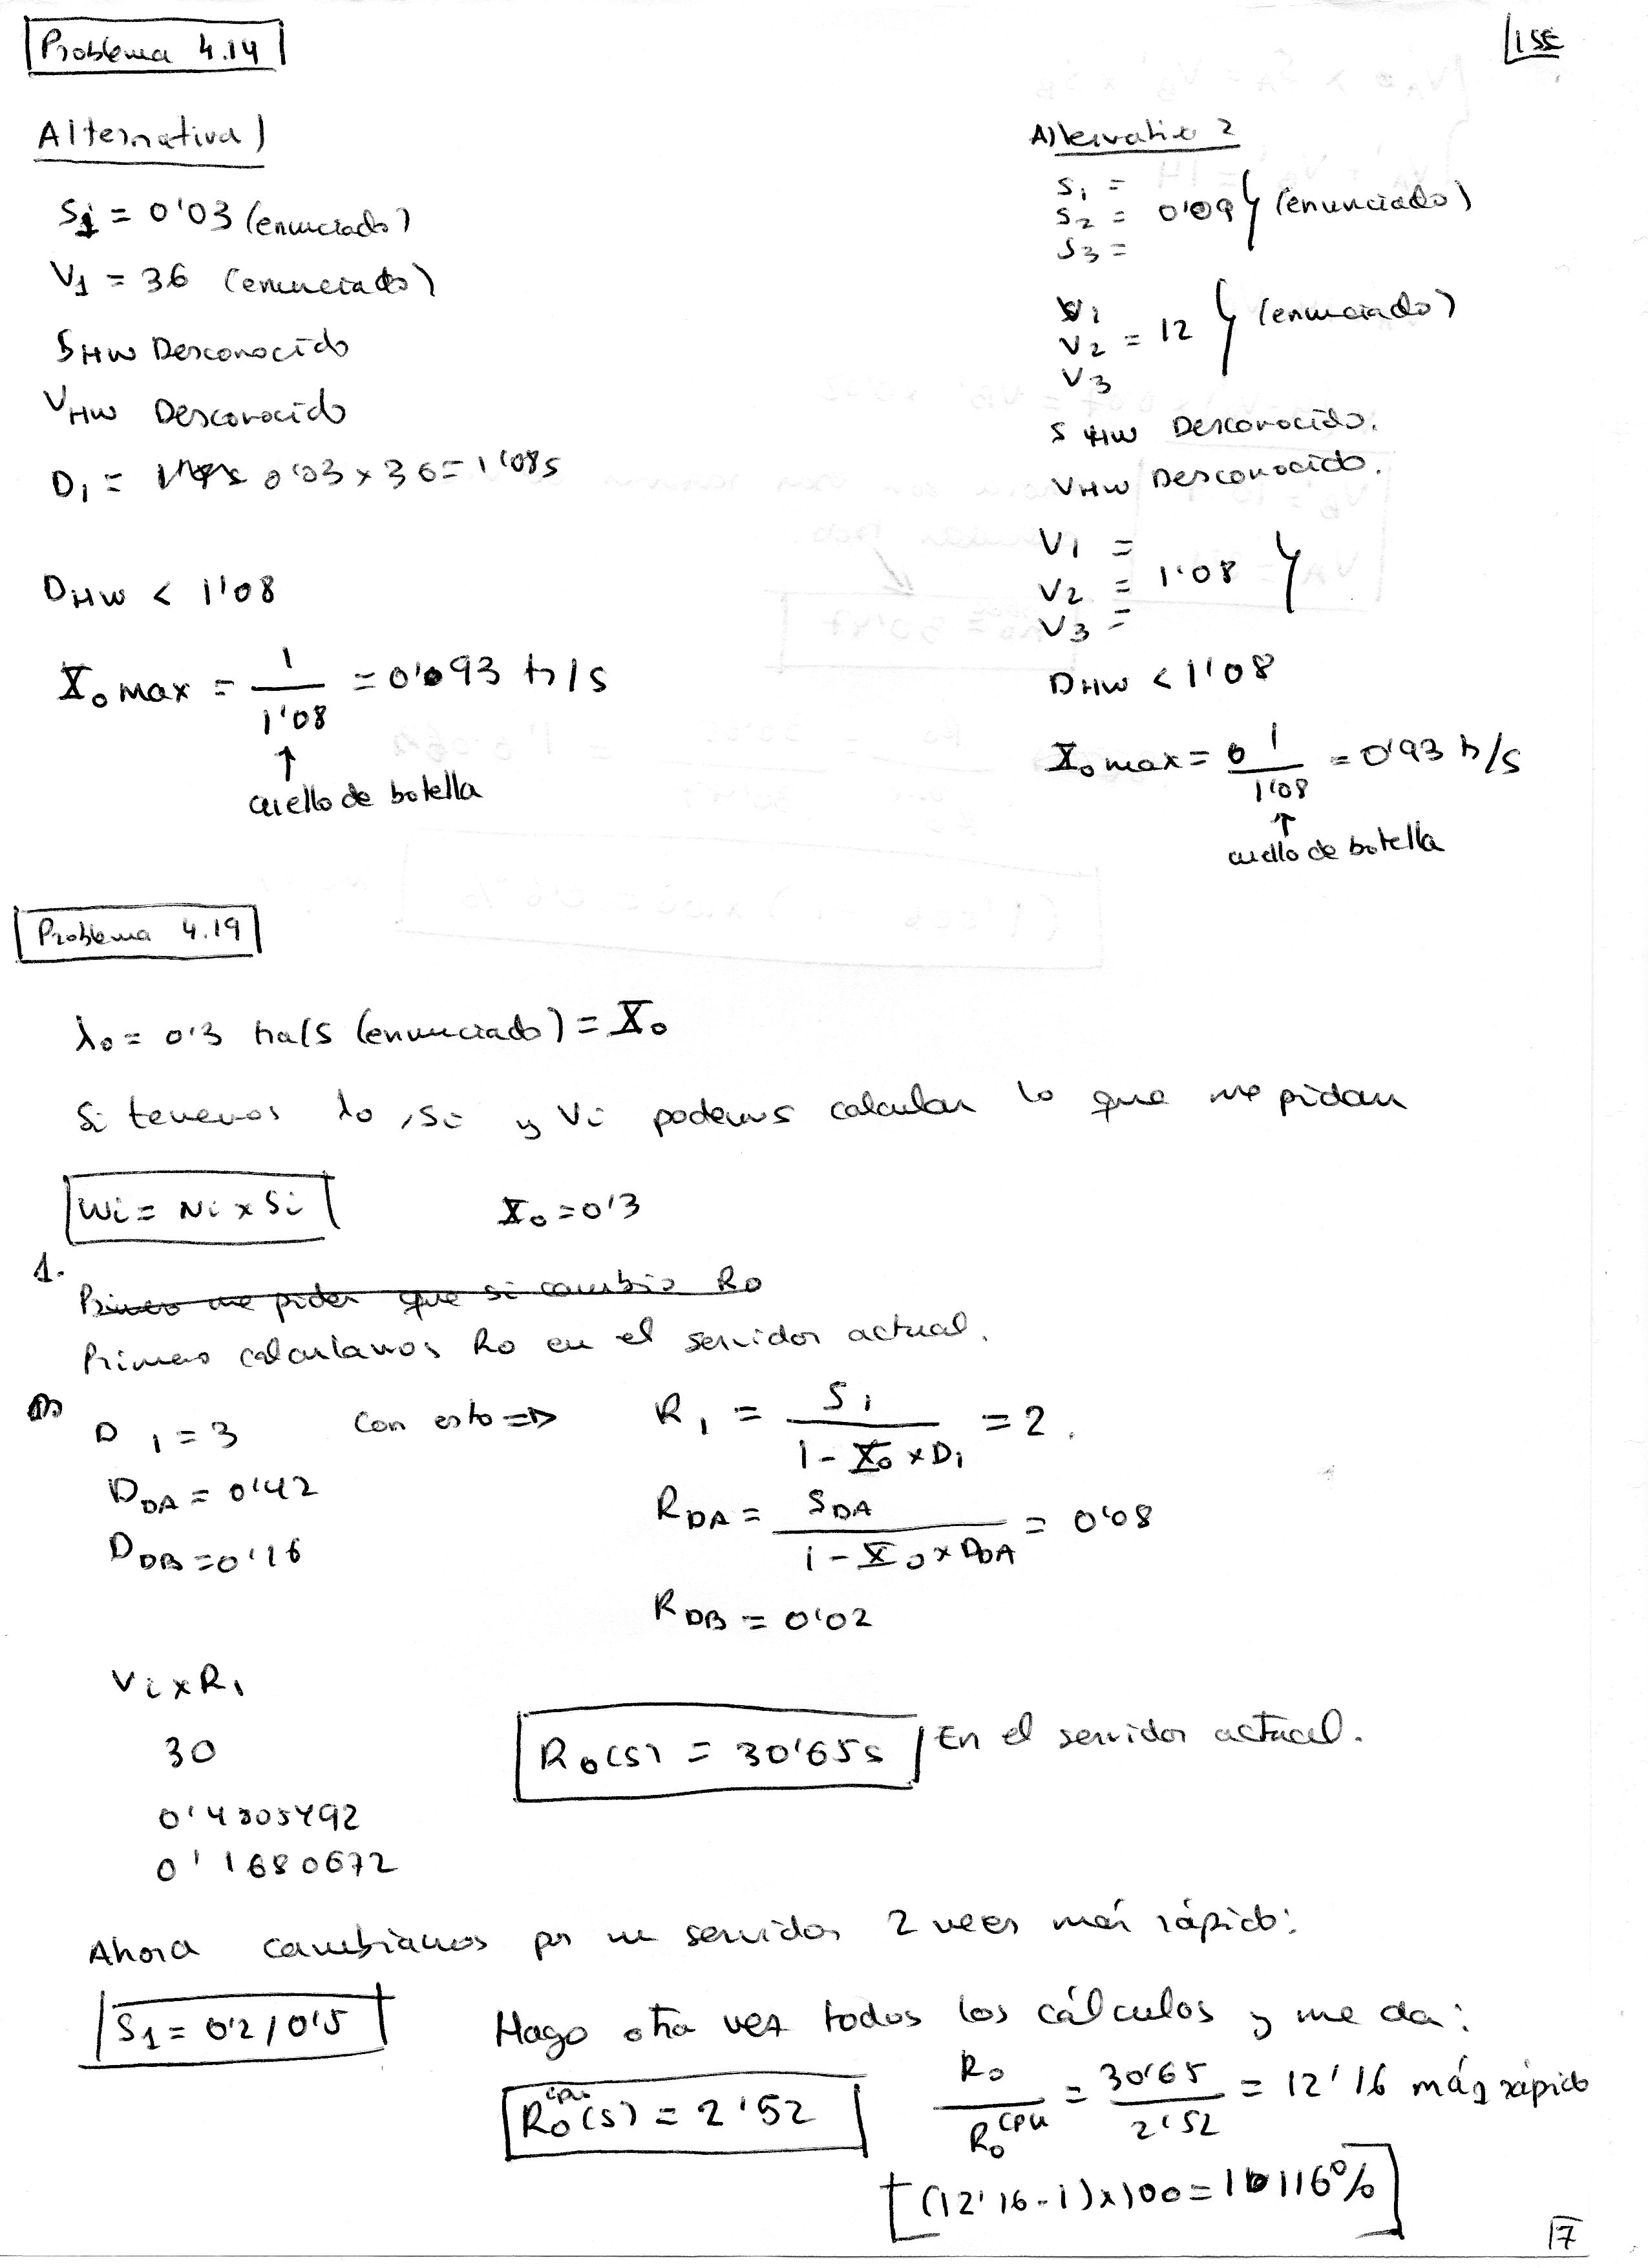 Problema 4.14
ISE
Alternativa 1
S1 = 0'03 (enunciado)
V1 = 36 (enunciado)
SHW Desconocido
VHW Desconocido
D1 = 0'03 x 36 = 1'08s
DHW < 1'08
X0 max = 1/1'08 = 0'093 tr/s
↑
cuello de botella
Alternativa 2
S1 =
S2 = 0'09 } (enunciado)
S3 =
V1
V2 = 12 } (enunciado)
V3
SHW Desconocido.
VHW Desconocido.
V1 =
V2 = 1'08 }
V3 =
DHW < 1'08
X0 max = 1/1'08 = 0'93 tr/s
↑
cuello de botella
Problema 4.19
λ0 = 0'3 tra/s (enunciado) = X0
Si tenemos λ0, Si y Vi podemos calcular lo que me pidan
Wi = Ni x Si X0 = 0'3
1.
Primero me piden que si cambia R0
Primero calculamos R0 en el servidor actual.
D1 = 3 Con esto => R1 = S1 / (1 - X0 x D1) = 2.
DDA = 0'42 RDA = SDA / (1 - X0 x DDA) = 0'08
DDB = 0'16
RDB = 0'02
Vi x R1
30
R0(s) = 30'65s En el servidor actual.
0'4805492
0'1680672
Ahora cambiamos por un servidor 2 veces más rápido:
S1 = 0'2 / 0'5 Hago otra vez todos los cálculos y me da:
R0^cpu(s) = 2'52 R0 / R0^CPU = 30'65 / 2'52 = 12'16 más rápido
[(12'16 - 1) x 100 = 1116%]
17